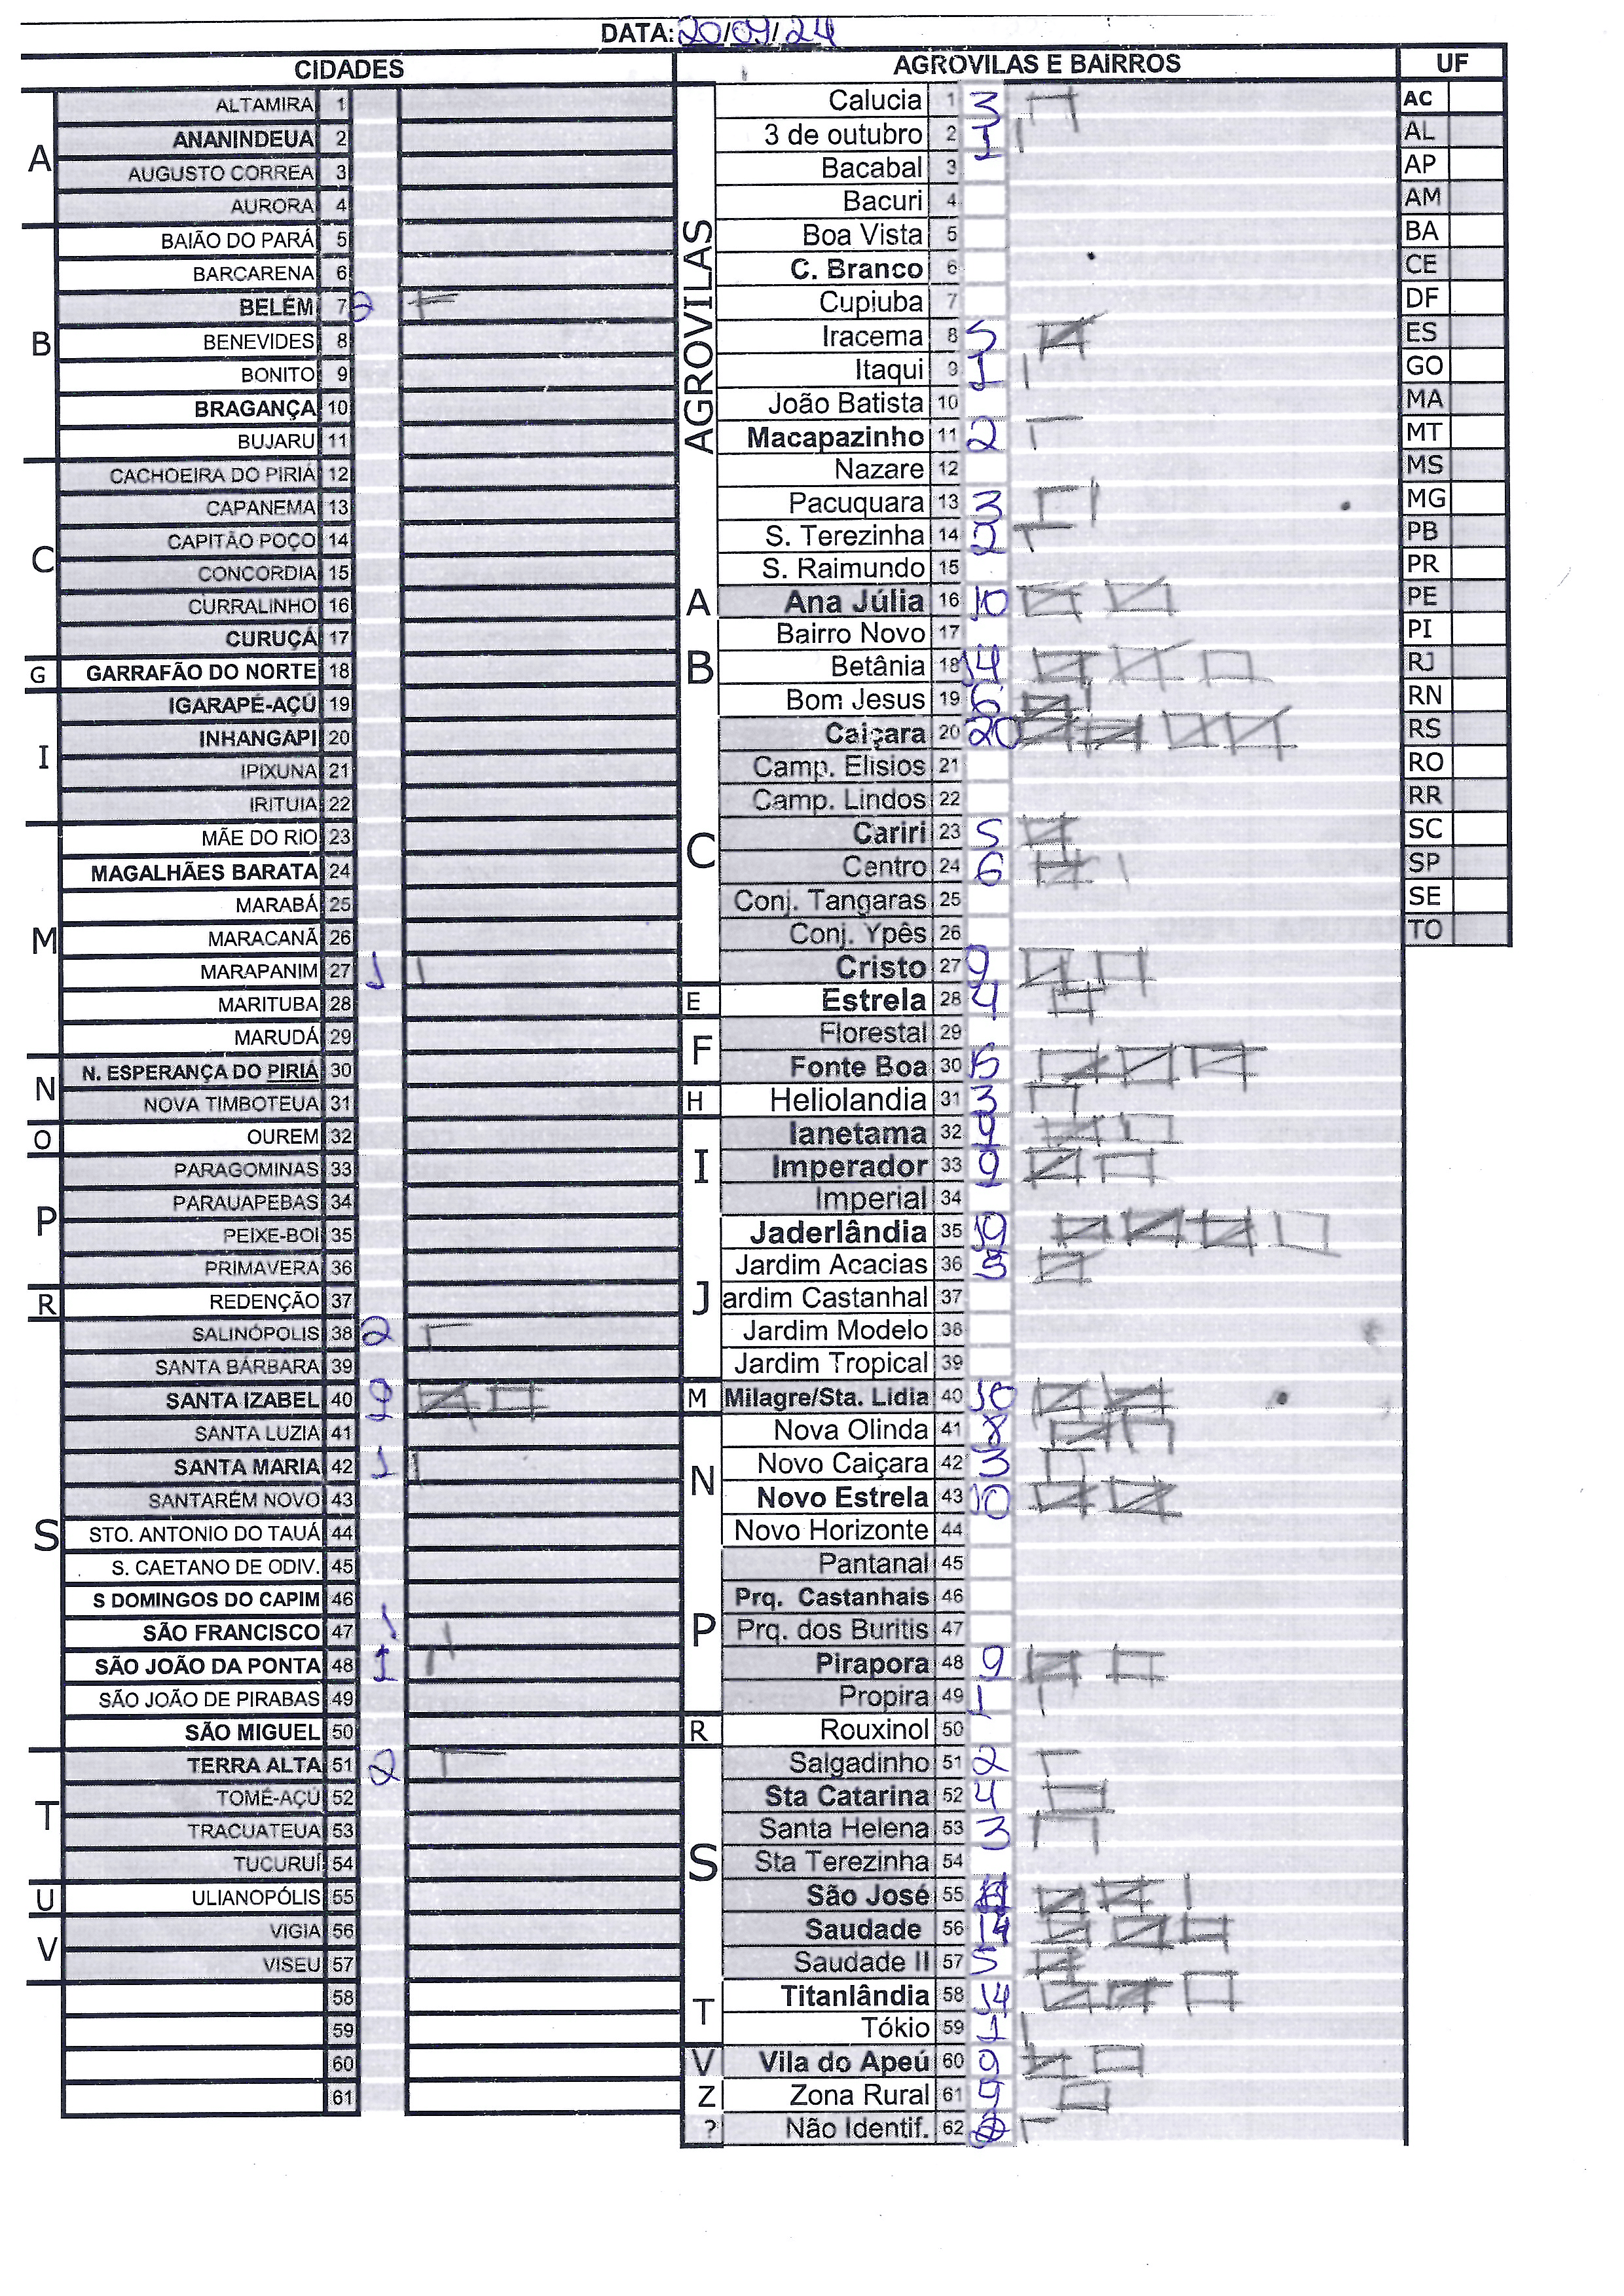 DATA: 20/09/24
CIDADES
A
ALTAMIRA 1
ANANINDEUA 2
AUGUSTO CORREA 3
AURORA 4
B
BAIÃO DO PARÁ 5
BARCARENA 6
BELÉM 7 2
BENEVIDES 8
BONITO 9
BRAGANÇA 10
BUJARU 11
C
CACHOEIRA DO PIRIÁ 12
CAPANEMA 13
CAPITÃO POÇO 14
CONCORDIA 15
CURRALINHO 16
CURUÇÁ 17
G
GARRAFÃO DO NORTE 18
I
IGARAPÉ-AÇÚ 19
INHANGAPI 20
IPIXUNA 21
IRITUIA 22
M
MÃE DO RIO 23
MAGALHÃES BARATA 24
MARABÁ 25
MARACANÃ 26
MARAPANIM 27 1
MARITUBA 28
MARUDÁ 29
N
N. ESPERANÇA DO PIRIÁ 30
NOVA TIMBOTEUA 31
O
OUREM 32
P
PARAGOMINAS 33
PARAUAPEBAS 34
PEIXE-BOI 35
PRIMAVERA 36
R
REDENÇÃO 37
S
SALINÓPOLIS 38 2
SANTA BÁRBARA 39
SANTA IZABEL 40 9
SANTA LUZIA 41
SANTA MARIA 42 1
SANTARÉM NOVO 43
STO. ANTONIO DO TAUÁ 44
S. CAETANO DE ODIV. 45
S DOMINGOS DO CAPIM 46
SÃO FRANCISCO 47 1
SÃO JOÃO DA PONTA 48 1
SÃO JOÃO DE PIRABAS 49
SÃO MIGUEL 50
T
TERRA ALTA 51 2
TOMÉ-AÇÚ 52
TRACUATEUA 53
TUCURUÍ 54
U
ULIANOPÓLIS 55
V
VIGIA 56
VISEU 57
58
59
60
61
AGROVILAS E BAIRROS
AGROVILAS
Calucia 1 3
3 de outubro 2 1
Bacabal 3
Bacuri 4
Boa Vista 5
C. Branco 6
Cupiuba 7
Iracema 8 5
Itaqui 9 1
João Batista 10
Macapazinho 11 2
Nazare 12
Pacuquara 13 3
S. Terezinha 14 2
S. Raimundo 15
A
Ana Júlia 16 10
B
Bairro Novo 17
Betânia 18 14
Bom Jesus 19 6
C
Caiçara 20 20
Camp. Elisios 21
Camp. Lindos 22
Cariri 23 5
Centro 24 6
Conj. Tangaras 25
Conj. Ypês 26
Cristo 27 9
E
Estrela 28 4
F
Florestal 29
Fonte Boa 30 15
H
Heliolandia 31 3
I
Ianetama 32 9
Imperador 33 9
Imperial 34
J
Jaderlândia 35 19
Jardim Acacias 36 5
ardim Castanhal 37
Jardim Modelo 38
Jardim Tropical 39
M
Milagre/Sta. Lidia 40 10
N
Nova Olinda 41 8
Novo Caiçara 42 3
Novo Estrela 43 10
Novo Horizonte 44
P
Pantanal 45
Prq. Castanhais 46
Prq. dos Buritis 47
Pirapora 48 9
Propira 49 1
R
Rouxinol 50
S
Salgadinho 51 2
Sta Catarina 52 4
Santa Helena 53 3
Sta Terezinha 54
São José 55
Saudade 56 14
Saudade II 57 5
T
Titanlândia 58 14
Tókio 59 1
V
Vila do Apeú 60 9
Z
Zona Rural 61 9
?
Não Identif. 62
UF
AC
AL
AP
AM
BA
CE
DF
ES
GO
MA
MT
MS
MG
PB
PR
PE
PI
RJ
RN
RS
RO
RR
SC
SP
SE
TO